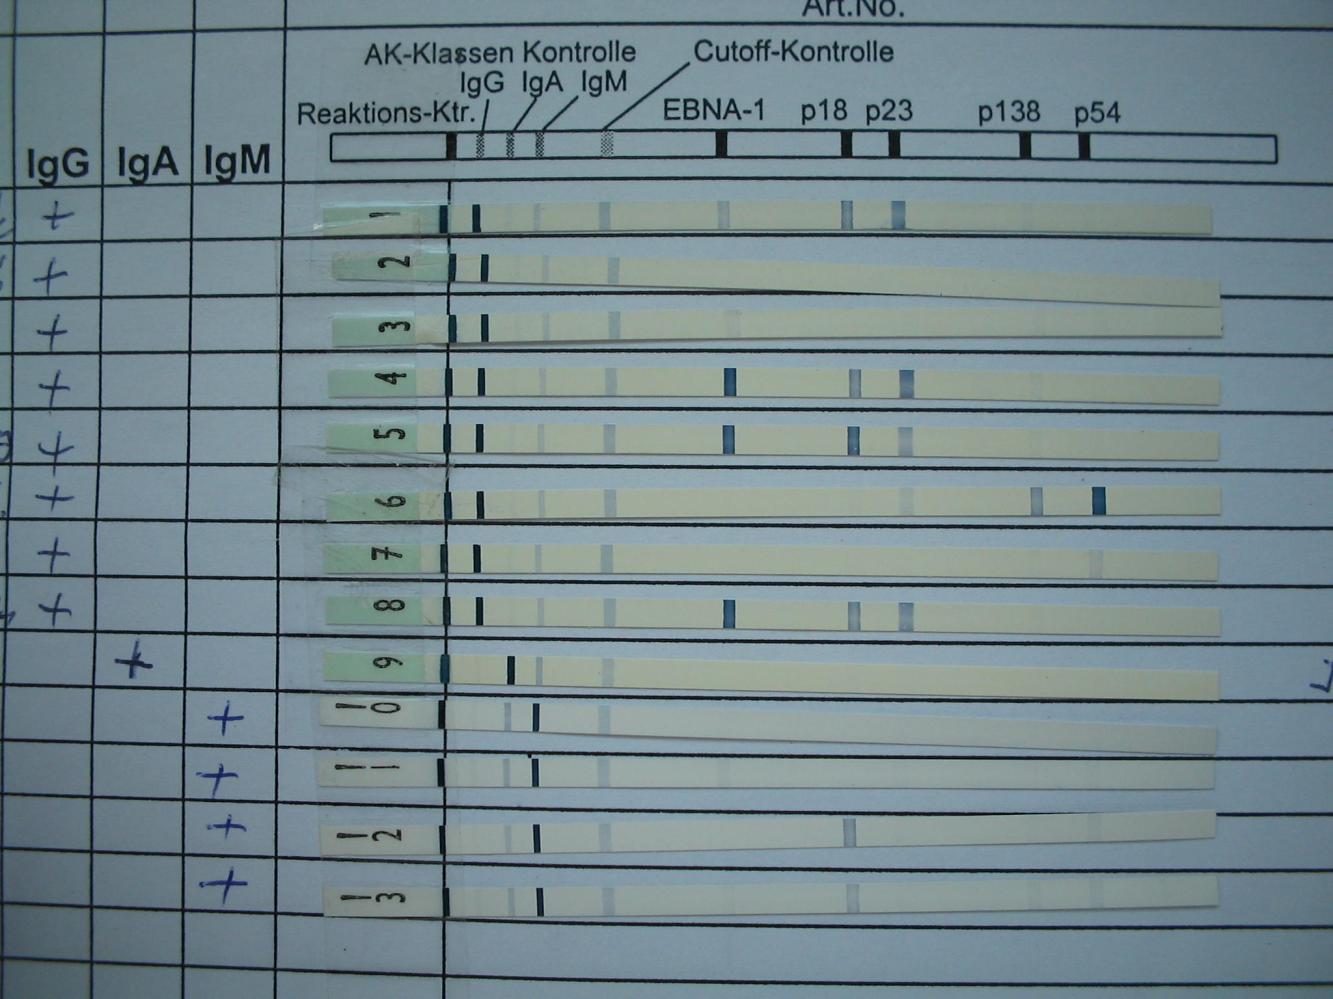 Art.No.
AK-Klassen Kontrolle
Cutoff-Kontrolle
IgG IgA IgM
Reaktions-Ktr.
EBNA-1 p18 p23 p138 p54
IgG IgA IgM
+ 1
+ 2
+ 3
+ 4
+ 5
+ 6
+ 7
+ 8
+ 9
+ 10
+ 11
+ 12
+ 13